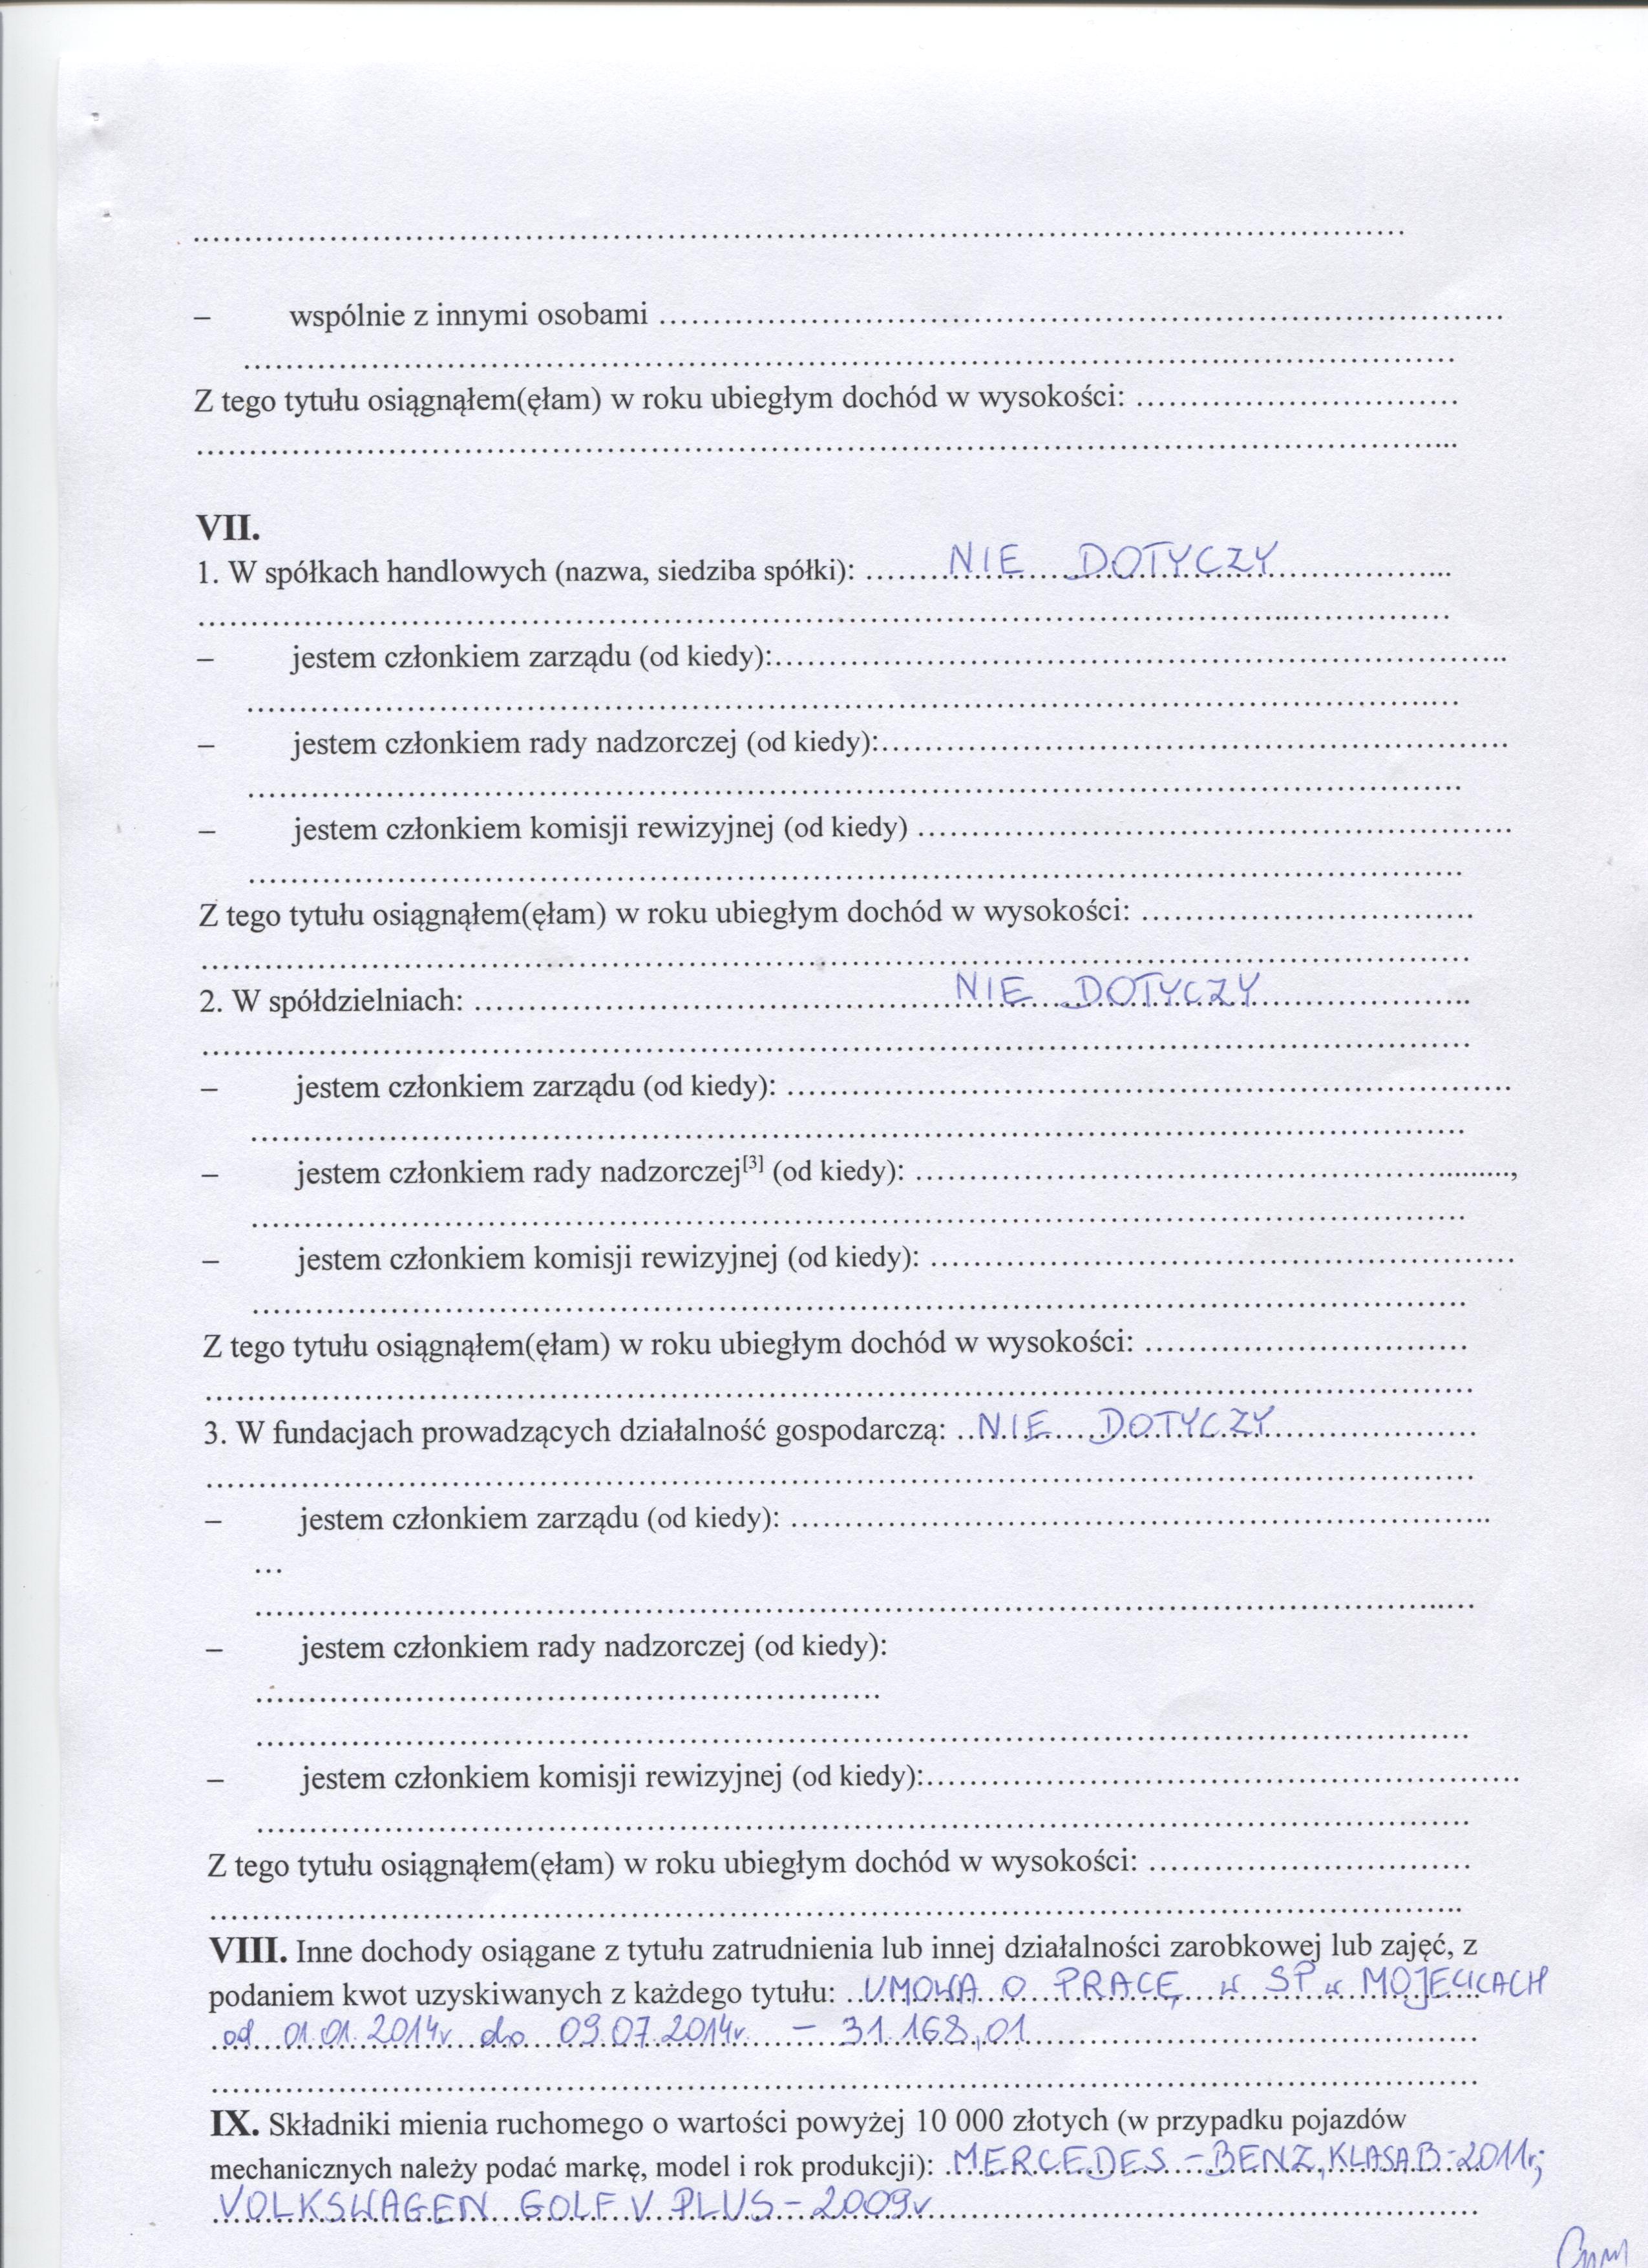 – wspólnie z innymi osobami ........................................
Z tego tytułu osiągnąłem(ęłam) w roku ubiegłym dochód w wysokości: ....................
VII.
1. W spółkach handlowych (nazwa, siedziba spółki): ........ NIE DOTYCZY ....................
– jestem członkiem zarządu (od kiedy):........................................
– jestem członkiem rady nadzorczej (od kiedy):........................................
– jestem członkiem komisji rewizyjnej (od kiedy) ........................................
Z tego tytułu osiągnąłem(ęłam) w roku ubiegłym dochód w wysokości: ....................
2. W spółdzielniach: ........................................ NIE DOTYCZY ....................
– jestem członkiem zarządu (od kiedy): ........................................
– jestem członkiem rady nadzorczej[3] (od kiedy): ........................................,
– jestem członkiem komisji rewizyjnej (od kiedy): ........................................
Z tego tytułu osiągnąłem(ęłam) w roku ubiegłym dochód w wysokości: ....................
3. W fundacjach prowadzących działalność gospodarczą: .. NIE DOTYCZY ....................
– jestem członkiem zarządu (od kiedy): ........................................
...
– jestem członkiem rady nadzorczej (od kiedy):
– jestem członkiem komisji rewizyjnej (od kiedy):........................................
Z tego tytułu osiągnąłem(ęłam) w roku ubiegłym dochód w wysokości: ....................
VIII. Inne dochody osiągane z tytułu zatrudnienia lub innej działalności zarobkowej lub zajęć, z
podaniem kwot uzyskiwanych z każdego tytułu: .. UMOWA O PRACĘ w SP w MOJĘCICACH
od 01.01.2014r do 09.07.2014r – 31.168,01
IX. Składniki mienia ruchomego o wartości powyżej 10 000 złotych (w przypadku pojazdów
mechanicznych należy podać markę, model i rok produkcji): . MERCEDES – BENZ, KLASA B - 2011r;
VOLKSWAGEN GOLF V PLUS – 2009r